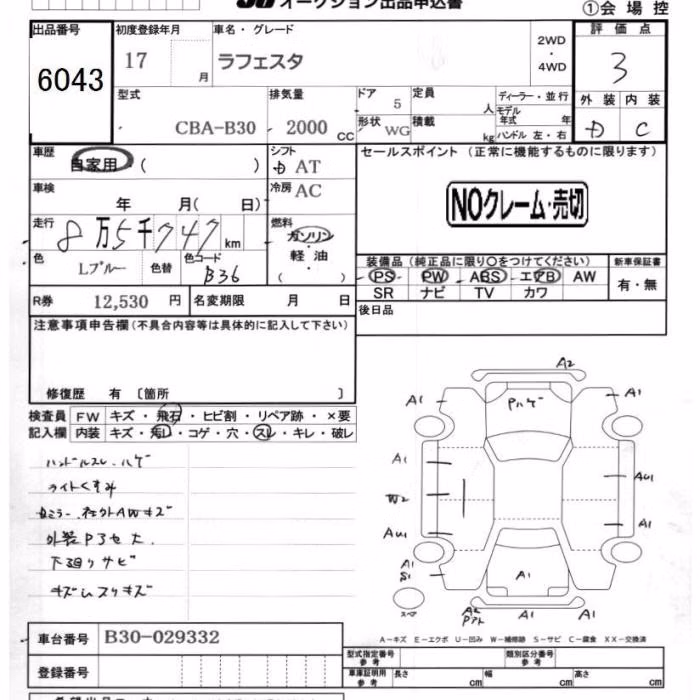 オークション出品申込書
①会場控
出品番号 6043
初度登録年月 17 月
車名・グレード ラフェスタ
2WD・4WD
評価点 3
型式 CBA-B30
排気量 2000 CC
ドア 5
定員 人
形状 WG
積載 kg
ディーラー・並行
モデル年式 年
ハンドル 左・右
外装 D
内装 C
車歴 自家用・( )
シフト AT
冷房 AC
車検 年 月( 日)
走行 8万5千747km
燃料 ガソリン 軽油 ( )
色 Lブルー
色替
色コード B36
R券 12,530 円
名変期限 月 日
セールスポイント(正常に機能するものに限ります)
NOクレーム・売切
装備品(純正品に限り○をつけてください)
PS PW ABS エアB AW
SR ナビ TV カワ
新車保証書 有・無
後日品
注意事項申告欄(不具合内容等は具体的に記入して下さい)
修復歴 有 〔箇所 〕
検査員記入欄
FW キズ・飛石・ヒビ割・リペア跡・×要
内装 キズ・汚レ・コゲ・穴・スレ・キレ・破レ
ハンドルスレ・ハゲ
ライトくすみ
社外AWキズ
下廻りサビ
A2
A1 Pハゲ A1
A1
W2 AU1
AU1 A1
A1
S1
A1
スペア
A1 A1
A−キズ E−エクボ U−凹み W−補修跡 S−サビ C−腐食 XX−交換済
車台番号 B30-029332
登録番号
型式指定番号 参考
類別区分番号 参考
車庫証明用 参考 長さ cm 幅 cm 高さ cm